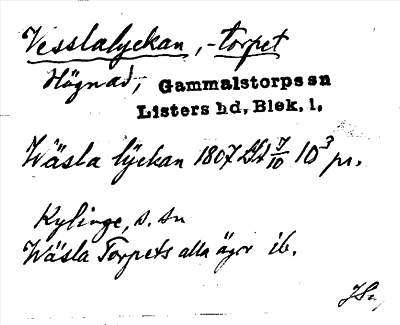 Vesslalyckan, -torpet
Högnad, Gammalstorps sn
Listers hd, Blek. l.
Wäsla lÿckan 1807 7/10 10³ pr.
Kylinge, s. sn
Wäsla Torpets alla ägor ib.